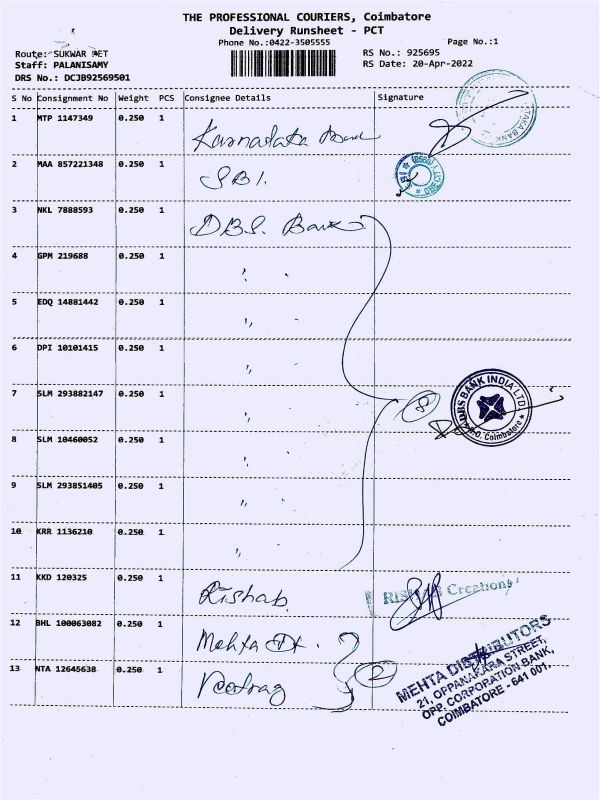 THE PROFESSIONAL COURIERS, Coimbatore
Delivery Runsheet - PCT
Phone No.:0422-3505555
Page No.:1
Route: SUKWAR PET
RS No.: 925695
Staff: PALANISAMY
RS Date: 20-Apr-2022
DRS No.: DCJB92569501
S No Consignment No Weight PCS Consignee Details Signature
1 MTP 1147349 0.250 1 Karnataka Bank
2 MAA 857221348 0.250 1 SBI.
3 NKL 7888593 0.250 1 DBS. Bank
4 GPM 219688 0.250 1 "
5 EDQ 14881442 0.250 1 "
6 DPI 10101415 0.250 1 "
7 SLM 293882147 0.250 1 "
8
DBS BANK INDIA LTD.
Coimbatore
8 SLM 10460052 0.250 1 "
9 SLM 293851405 0.250 1 "
10 KRR 1136210 0.250 1 "
11 KKD 120325 0.250 1 Rishab
Creations
12 BHL 100063082 0.250 1 Mehta Dt.
13 NTA 12645638 0.250 1
2
MEHTA DISTRIBUTORS
21, OPPANAKARA STREET,
OPP. CORPORATION BANK,
COIMBATORE - 641 001.